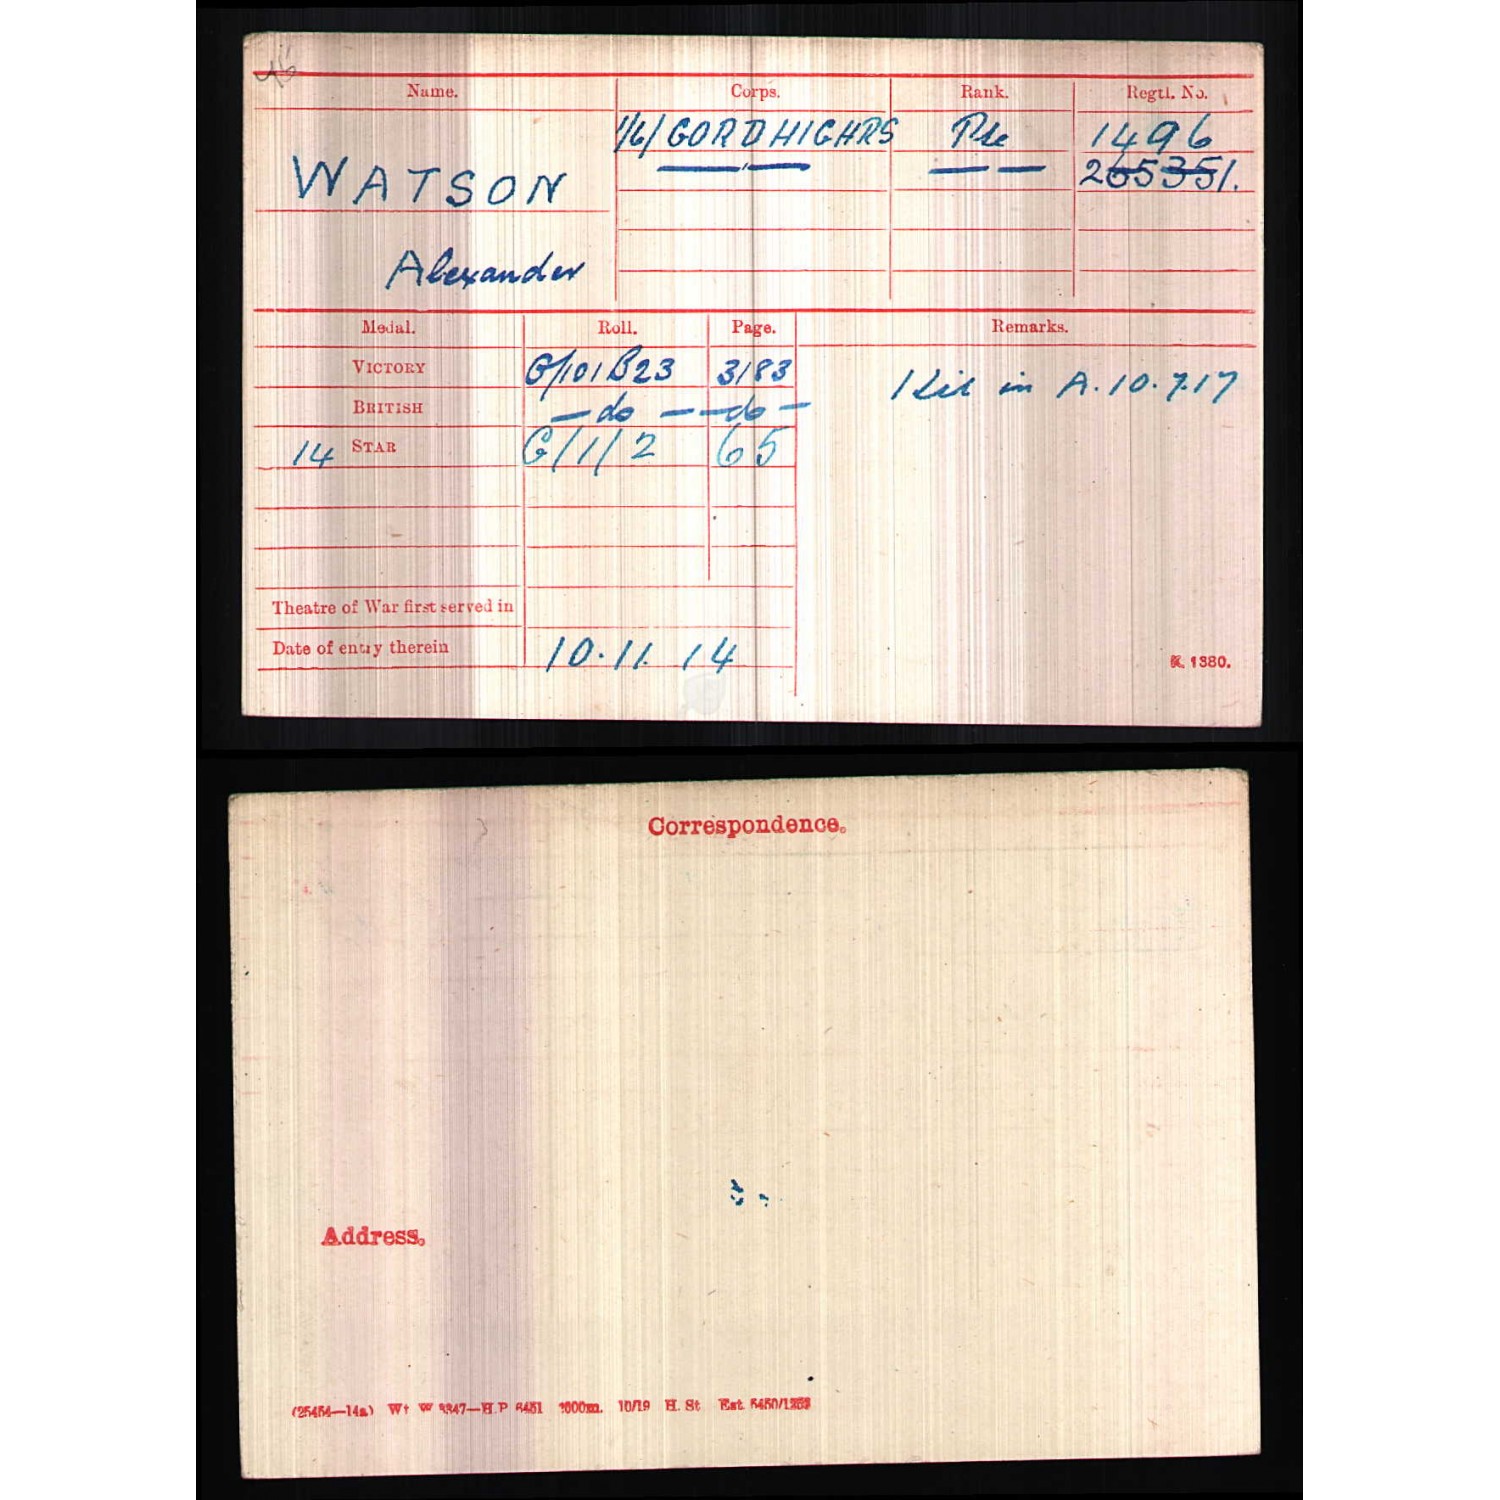 Name. Corps. Rank. Regtl. No.
1/6/ GORD HIGHRS Pte 1496
WATSON 265351.
Alexander
Medal. Roll. Page. Remarks.
VICTORY G/101B23 3183 Kil in A. 10.7.17
BRITISH — do — — do —
14 STAR G/1/2 65
Theatre of War first served in
Date of entry therein 10.11.14
K. 1380.
Correspondence.
Address.
(25454—14a) Wt W 3347—H.P 6451 1000m. 10/19 H. St Est.